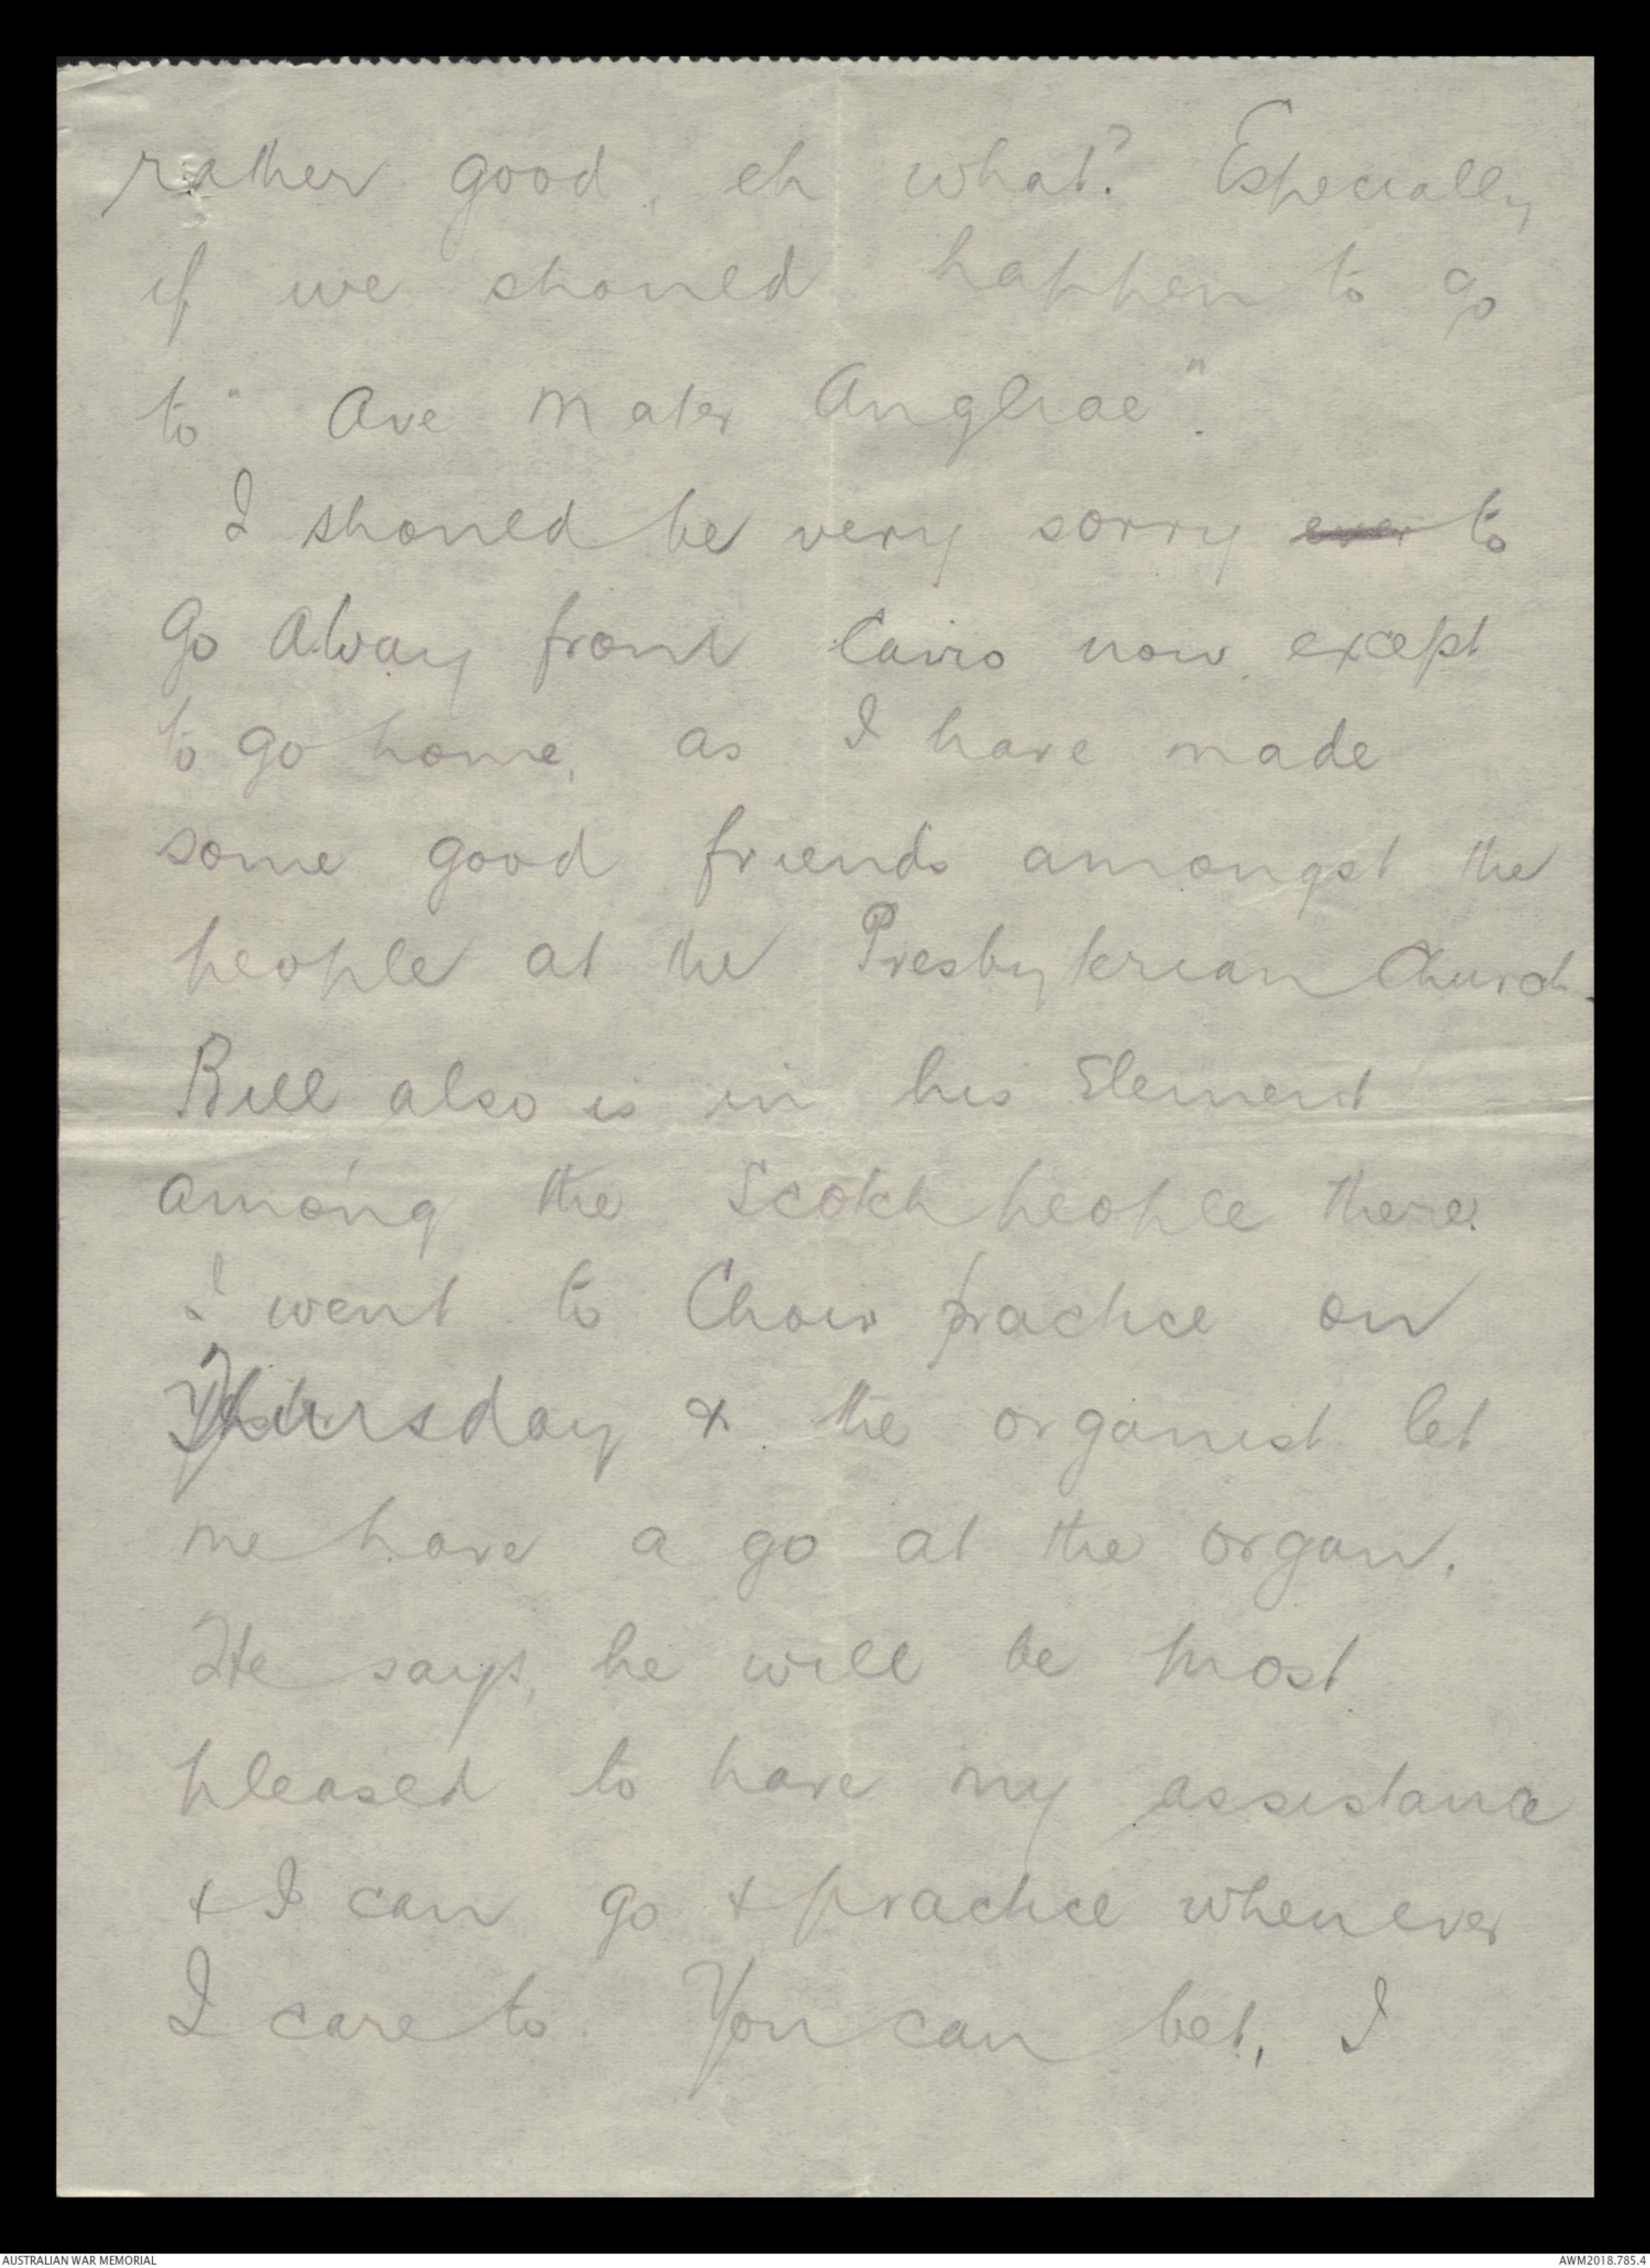 rather good, eh what? Especially
if we should happen to go
to "Ave Mater Angliae".
I should be very sorry ever to
go away from Cairo now, except
to go home, as I have made
some good friends amongst the
people at the Presbyterian Church.
Bill also is in his Element
among the Scotch people there.
I went to Choir practice on
Thursday & the organist let
me have a go at the organ.
He says, he will be most
pleased to have my assistance
& I can go & practice whenever
I care to. You can bet, I
AUSTRALIAN WAR MEMORIAL
AWM2018.785.4